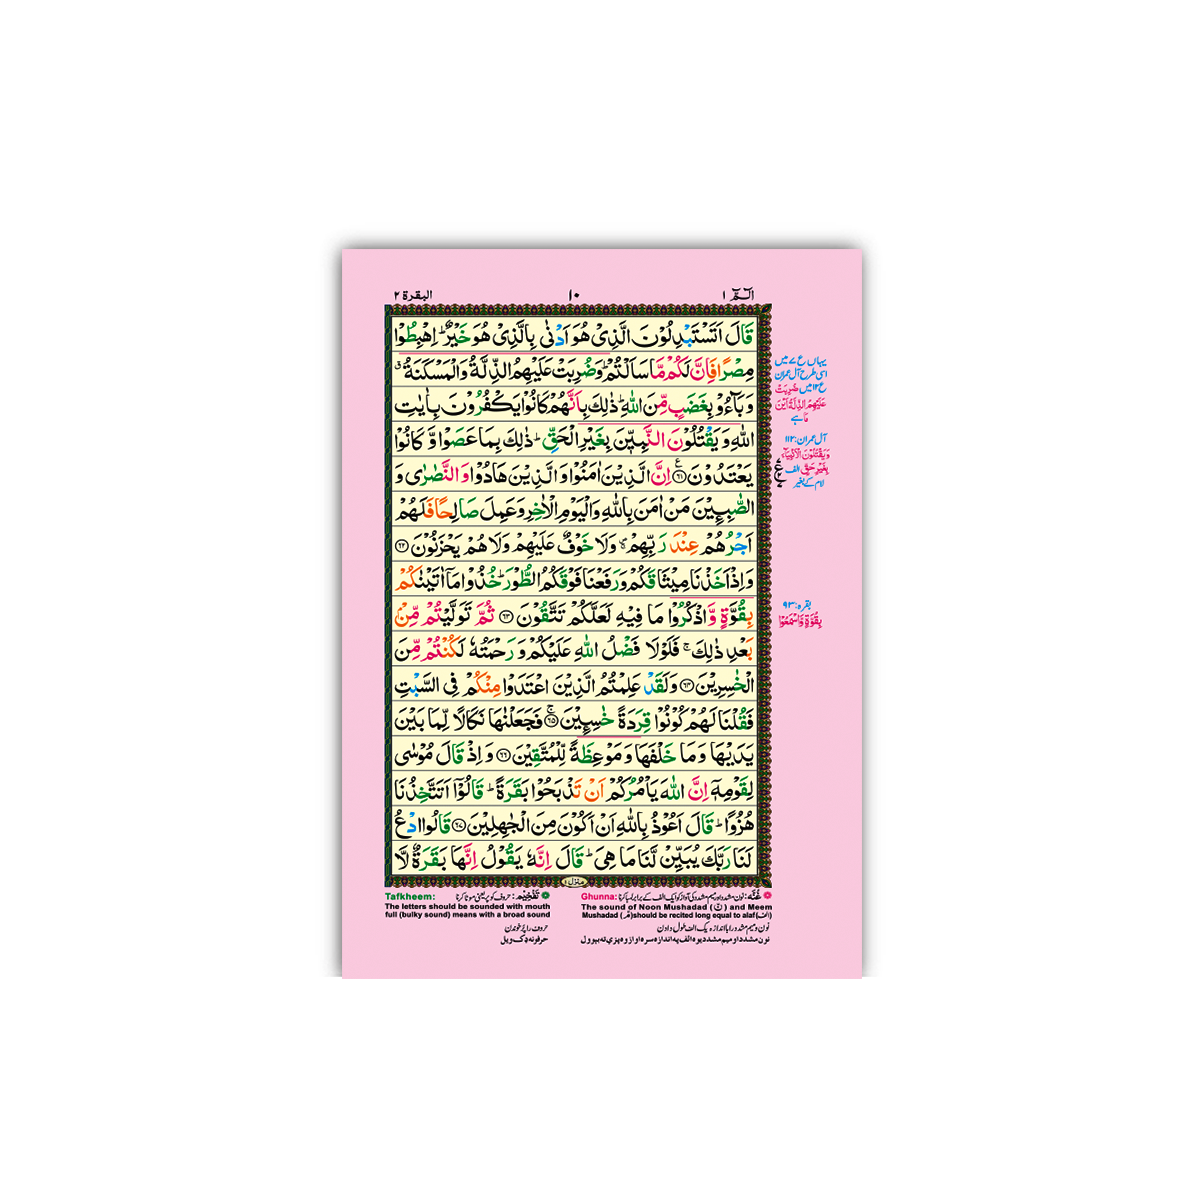 الٓمّٓ ١
١٠
البقرة ٢
قَالَ اَتَسْتَبْدِلُوْنَ الَّذِیْ هُوَ اَدْنٰی بِالَّذِیْ هُوَ خَیْرٌ ؕ اِهْبِطُوْا
مِصْرًا فَاِنَّ لَكُمْ مَّا سَاَلْتُمْ ؕ وَضُرِبَتْ عَلَیْهِمُ الذِّلَّةُ وَالْمَسْكَنَةُ ۗ
وَبَآءُوْ بِغَضَبٍ مِّنَ اللّٰهِ ؕ ذٰلِكَ بِاَنَّهُمْ كَانُوْا یَكْفُرُوْنَ بِاٰیٰتِ
اللّٰهِ وَیَقْتُلُوْنَ النَّبِیّٖنَ بِغَیْرِ الْحَقِّ ؕ ذٰلِكَ بِمَا عَصَوْا وَّكَانُوْا
یَعْتَدُوْنَ ۝٦١ اِنَّ الَّذِیْنَ اٰمَنُوْا وَالَّذِیْنَ هَادُوْا وَالنَّصٰرٰی وَ
الصّٰبِـِٕیْنَ مَنْ اٰمَنَ بِاللّٰهِ وَالْیَوْمِ الْاٰخِرِ وَعَمِلَ صَالِحًا فَلَهُمْ
اَجْرُهُمْ عِنْدَ رَبِّهِمْ ۪ۚ وَلَا خَوْفٌ عَلَیْهِمْ وَلَا هُمْ یَحْزَنُوْنَ ۝٦٢
وَاِذْ اَخَذْنَا مِیْثَاقَكُمْ وَرَفَعْنَا فَوْقَكُمُ الطُّوْرَ ؕ خُذُوْا مَاۤ اٰتَیْنٰكُمْ
بِقُوَّةٍ وَّاذْكُرُوْا مَا فِیْهِ لَعَلَّكُمْ تَتَّقُوْنَ ۝٦٣ ثُمَّ تَوَلَّیْتُمْ مِّنْۢ
بَعْدِ ذٰلِكَ ۚ فَلَوْلَا فَضْلُ اللّٰهِ عَلَیْكُمْ وَرَحْمَتُهٗ لَكُنْتُمْ مِّنَ
الْخٰسِرِیْنَ ۝٦٤ وَلَقَدْ عَلِمْتُمُ الَّذِیْنَ اعْتَدَوْا مِنْكُمْ فِی السَّبْتِ
فَقُلْنَا لَهُمْ كُوْنُوْا قِرَدَةً خٰسِـِٕیْنَ ۝٦٥ ۚ فَجَعَلْنٰهَا نَكَالًا لِّمَا بَیْنَ
یَدَیْهَا وَمَا خَلْفَهَا وَمَوْعِظَةً لِّلْمُتَّقِیْنَ ۝٦٦ وَاِذْ قَالَ مُوْسٰی
لِقَوْمِهٖۤ اِنَّ اللّٰهَ یَاْمُرُكُمْ اَنْ تَذْبَحُوْا بَقَرَةً ؕ قَالُوْۤا اَتَتَّخِذُنَا
هُزُوًا ؕ قَالَ اَعُوْذُ بِاللّٰهِ اَنْ اَكُوْنَ مِنَ الْجٰهِلِیْنَ ۝٦٧ قَالُوا ادْعُ
لَنَا رَبَّكَ یُبَیِّنْ لَّنَا مَا هِیَ ؕ قَالَ اِنَّهٗ یَقُوْلُ اِنَّهَا بَقَرَةٌ لَّا
منزل ١
یہاں ع ۷ میں
اسی طرح آل عمران
ع ۱۲ میں ضُرِبَتْ
عَلَیْهِمُ الذِّلَّةُ اَیْنَ
مَا ہے
آل عمران: ۱۱۲
وَیَقْتُلُوْنَ الْاَنْبِیَآءَ
بِغَیْرِ حَقٍّ الف
لام کے بغیر
بقرہ: ۹۳
بِقُوَّةٍ وَّاسْمَعُوْا
Ghunna: غُنّه: نون مشدد اور میم مشدد کی آواز کو ایک الف کے برابر لمبا کرنا
The sound of Noon Mushadad (نّ) and Meem
Mushadad (مّ) should be recited long equal to alaf (الف)
نون و میم مشدد را با اندازه یک الف طول دادن
نون مشدد او میم مشدد یوه الف په اندازه سره اواز وه پزې ته بیوول
Tafkheem: تَفْخِیْم: حروف کو پر یعنی موٹا کرنا
The letters should be sounded with mouth
full (bulky sound) means with a broad sound
حروف را پر خوندن
حرفونه ډک ویل